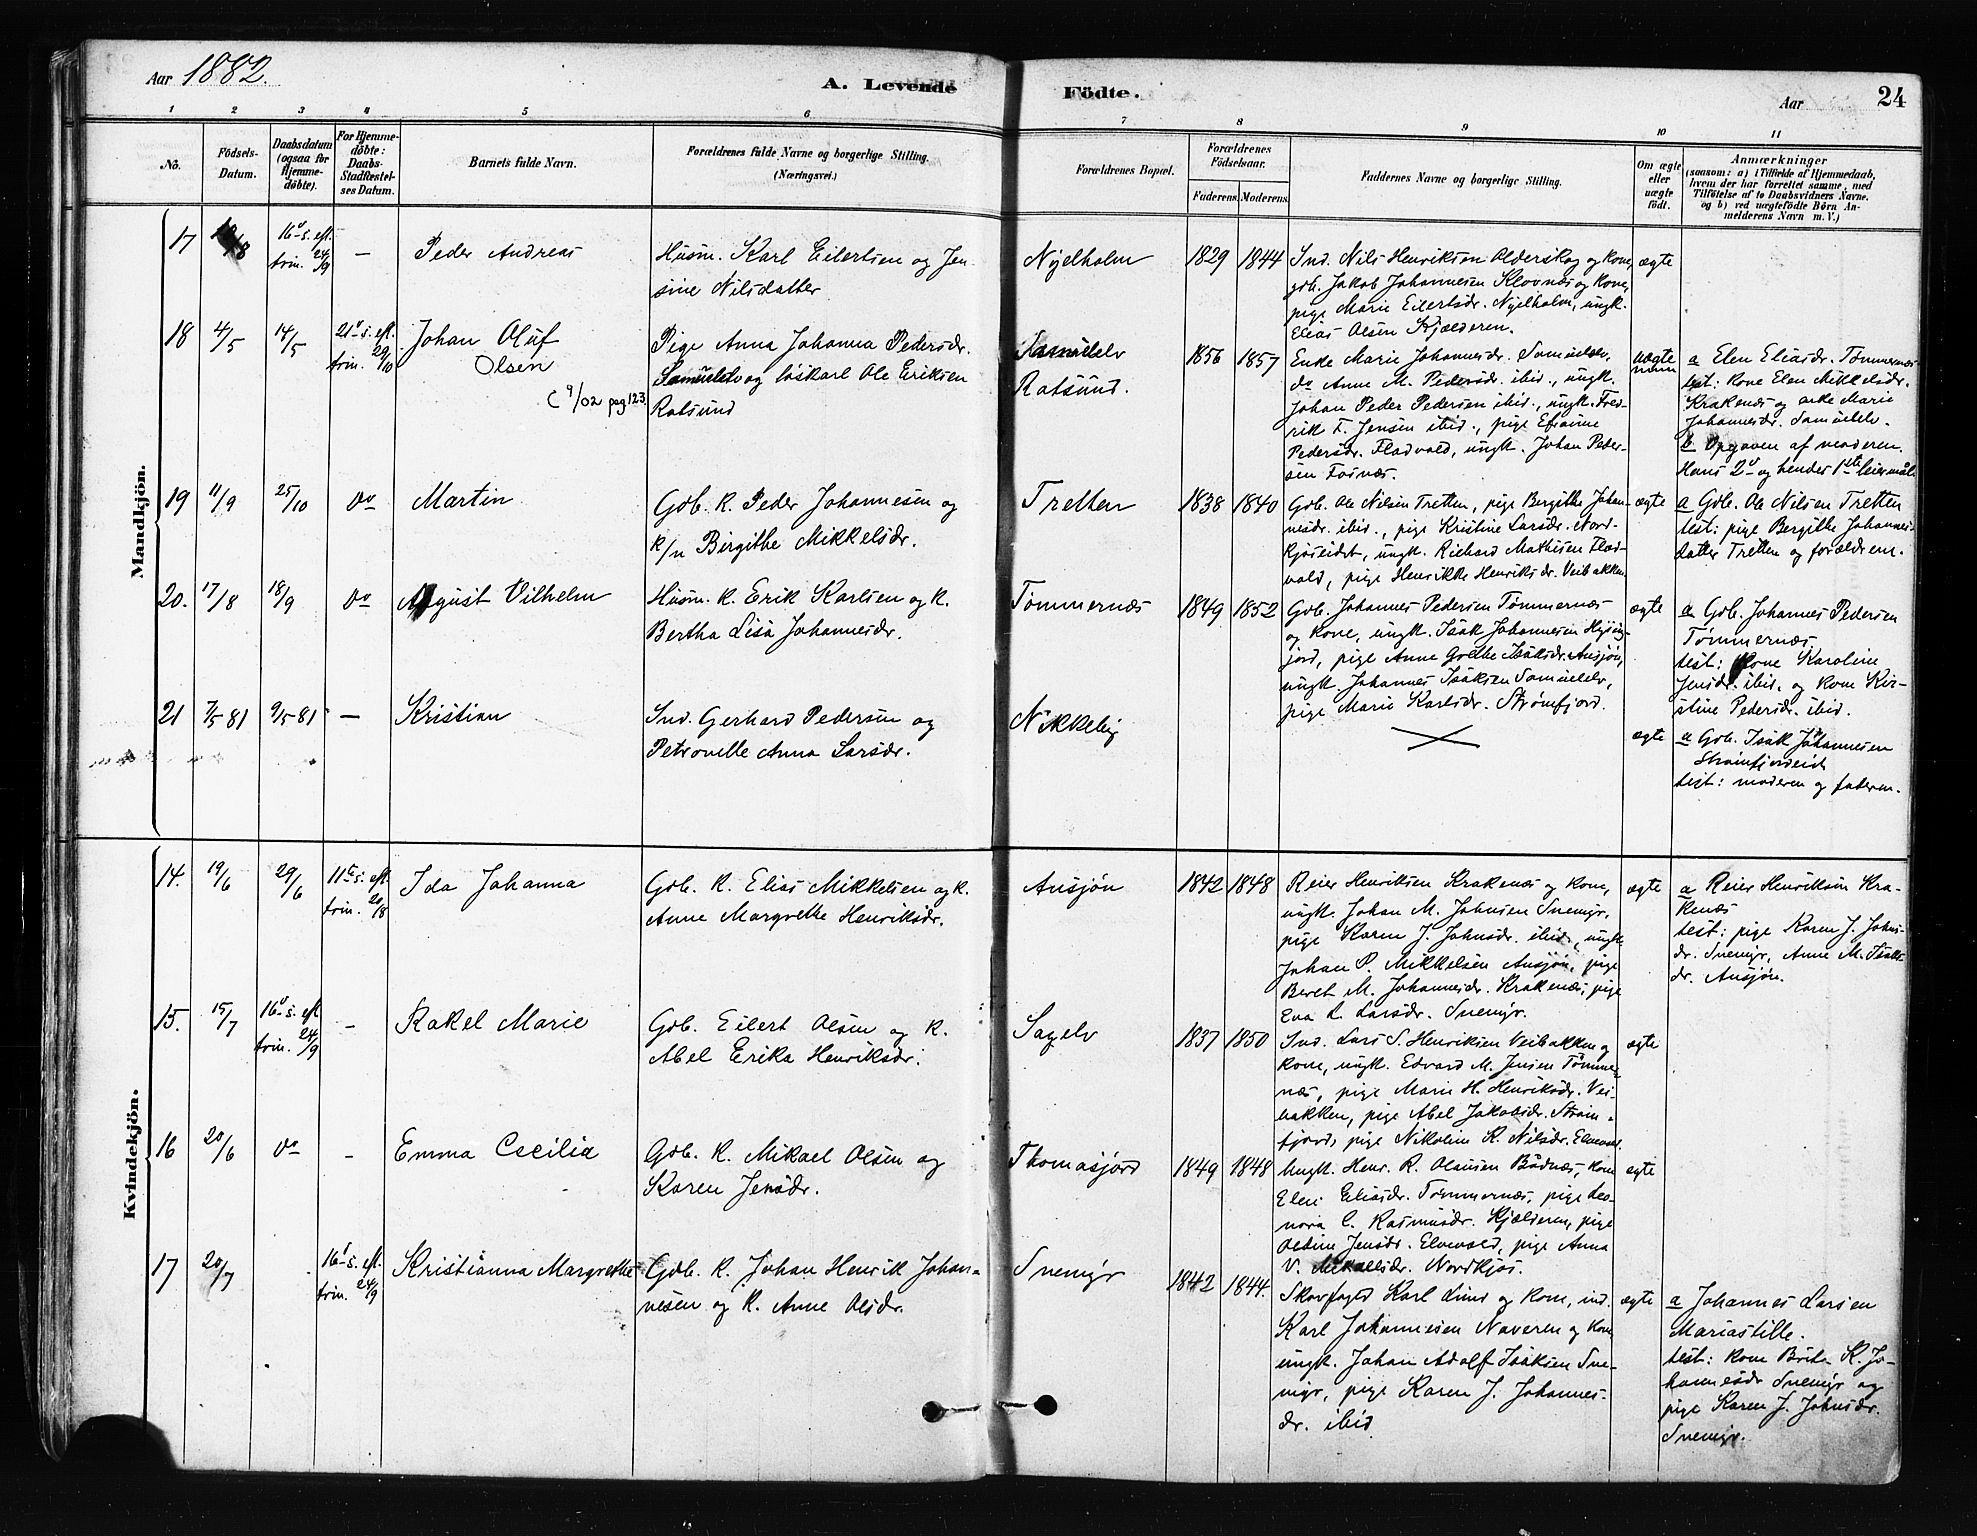 Aar 1882.
A. Levende Födte.
Aar
24
1 2 3 4 5 6 7 8 9 10 11
No.
Födsels-Datum.
Daabsdatum (ogsaa for Hjemmedöbte).
For Hjemmedöbte: Daabs-Stadfæstelses Datum.
Barnets fulde Navn.
Forældrenes fulde Navne og borgerlige Stilling.
(Næringsvei.)
Forældrenes Bopæl.
Forældrenes Födselsaar.
Faderens. Moderens.
Faddernes Navne og borgerlige Stilling.
Om ægte eller uægte födt.
Anmærkninger
(saasom: a) i Tilfælde af Hjemmedaab,
hvem der har forrettet samme, med
Tilföielse af to Daabsvidners Navne.
og b) ved uægtefödte Börn An-
melderens Navn m. V.)
Mandkjön.
17
16d s. eft.
trin. 24/9
—
Peder Andreas
Husm. Karl Eilertsen og Jen
sine Nilsdatter
Nyelholm
1829 1844
Ind. Nils Henriksen Alderskog og kone,
gdb. Jakob Johannesen Klovnæs og kone,
pige Marie Eilertsdr. Nyelholm, ungk.
Elias Olsen Kjælderen.
ægte
18
4/5
14/5
21d s. eft.
trin. 29/10
Johan Oluf
Olsen
(9/02 pag 123.
Pige Anna Johanna Pedersdr.
Samuelelv og löskarl Ole Eriksen
Rotsund
Samuelelv
Rotsund.
1856 1857
Enke Marie Johannesdr. Samuelelv,
do Anne M. Pedersdr. ibid., ungk.
Johan Peder Pedersen ibid., ungk. Fred-
rik F. Jensen ibid., pige Efianne
Pedersdr. Fladvold, ungk. Johan Peder-
sen Fosnæs.
uægte
a Elen Eliasdr. Tømmernæs
test: kone Elen Mikkelsdr.
Krakenæs og enke Marie
Johannesdr. Samuelelv.
b Opgaven af moderen.
Hans 2d og hendes 1ste leiermål
19
11/9
25/10
do
Martin
Gdb. k. Peder Johannesen og
k/n Birgithe Mikkelsdr.
Tretten
1838 1840
Gdb. Ole Nilsen Tretten, pige Bergithe Johan-
nesdr. ibid., pige Kristine Larsdr. Nord-
kjoseidet, ungk. Richard Mathisen Flad-
vold, pige Henrikke Henriksdr. Veibakken
ægte
a Gdb. Ole Nilsen Tretten
test: pige Bergithe Johannes-
datter Tretten og forældrene.
20.
17/8
18/9
do
August Vilhelm
Husm. k. Erik Karlsen og k.
Bertha Lisa Johannesdr.
Tømmernæs
1849 1852
Gdb. Johannes Pedersen Tømmernæs
og kone, ungk. Isak Johannesen
pige Anne Grethe Isaksdr. Ansjøn,
ungk. Johannes Isaksen Samuelelv,
pige Marie Karlsdr. Strømfjord.
ægte
a Gdb. Johannes Pedersen
Tømmernæs
test: kone Karoline
Jensdr. ibid. og kone Kir-
stine Pedersdr. ibid.
21
7/5 81
9/5 81
—
Kristian
Ind. Gerhard Pedersen og
Petronelle Anna Larsdr.
Nikkeby
ægte
a Gdb. Isak Johannesen
Strømfjordeid
test: moderen og faderen.
Kvindekjön.
14.
19/6
29/6
11te s. eft.
trin. 20/8
Ida Johanna
Gdb. k. Elias Mikkelsen og k.
Anne Margrethe Henriksdr.
Ansjøn
1842 1848
Reier Henriksen Krakenæs og kone,
ungk. Johan M. Johnsen Snemyr,
pige Karen J. Johnsdr. ibid., ungk.
Johan P. Mikkelsen Ansjøn, pige
Beret M. Johannesdr. Krakenæs, pige
Eva L. Larsdr. Snemyr.
ægte
a Reier Henriksen Kra-
kenæs
test: pige Karen J. Johns-
dr. Snemyr, Anne M. Isaks
dr. Ansjøn.
15.
15/7
16d s. eft
trin. 24/9
-
Rakel Marie
Gdb. Eilert Olsen og k.
Abel Erika Henriksdr.
Sagelv
1837 1850
Ind. Lars S. Henriksen Veibakken og
kone, ungk. Edvard M. Jensen Tømmer-
næs, pige Marie H. Henriksdr. Vei-
bakken, pige Abel Jakobsdr. Strøm-
fjord, pige Nikoline K. Nilsdr. Elvevold.
ægte
16
20/6
do
-
Emma Cecilia
Gdb. k. Mikael Olsen og
Karen Jensdr.
Thomasjord
1849 1848
Ungk. Henr. R. Olausen Bådnæs, kone
Elen Eliasdr. Tømmernæs, pige Leo-
nora C. Rasmusdr. Kjælderen, pige
Oldine Jensdr. Elvevold, pige Anna
V. Mikaelsdr. Nordkjos.
ægte
17
20/7
16d s. eft.
trin. 24/9
Kristianna Margrethe
Gdb. k. Johan Henrik Johan-
nesen og k. Anne Olsdr.
Snemyr
1842 1844.
Skovfoged Karl Lund og kone, ind.
Karl Johannesen Naveren og kone
ungk. Johan Adolf Isaksen Sne-
myr, pige Karen J. Johannes-
dr. ibid
ægte
a Johannes Larsen
Mariastille.
test: kone Brita K. Jo-
hannesdr Snemyr og
pige Karen J. Johnsdr.
Snemyr.